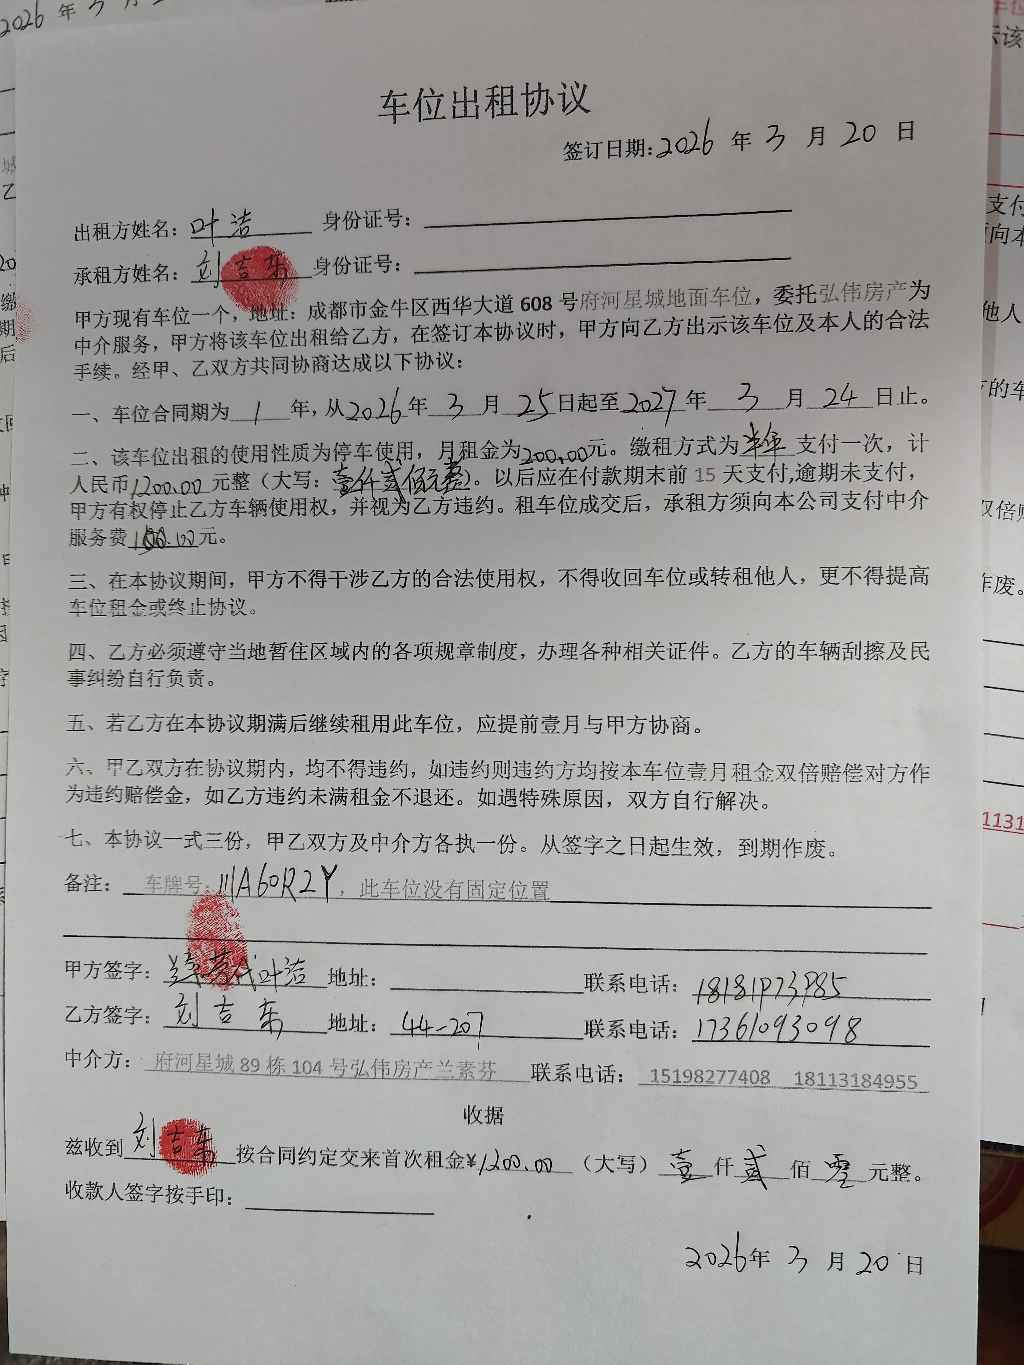 车位出租协议
签订日期:2026 年 3 月 20 日
出租方姓名: 叶洁 身份证号:
承租方姓名: 刘吉东 身份证号:
甲方现有车位一个，地址：成都市金牛区西华大道 608 号府河星城地面车位，委托弘伟房产为
中介服务，甲方将该车位出租给乙方，在签订本协议时，甲方向乙方出示该车位及本人的合法
手续。经甲、乙双方共同协商达成以下协议：
一、车位合同期为 1 年，从2026年 3 月 25日起至2027年 3 月 24 日止。
二、该车位出租的使用性质为停车使用，月租金为200.00元。缴租方式为半年支付一次，计
人民币1200.00 元整（大写：壹仟贰佰元整）。以后应在付款期末前 15 天支付,逾期未支付，
甲方有权停止乙方车辆使用权，并视为乙方违约。租车位成交后，承租方须向本公司支付中介
服务费100.00元。
三、在本协议期间，甲方不得干涉乙方的合法使用权，不得收回车位或转租他人，更不得提高
车位租金或终止协议。
四、乙方必须遵守当地暂住区域内的各项规章制度，办理各种相关证件。乙方的车辆刮擦及民
事纠纷自行负责。
五、若乙方在本协议期满后继续租用此车位，应提前壹月与甲方协商。
六、甲乙双方在协议期内，均不得违约，如违约则违约方均按本车位壹月租金双倍赔偿对方作
为违约赔偿金，如乙方违约未满租金不退还。如遇特殊原因，双方自行解决。
七、本协议一式三份，甲乙双方及中介方各执一份。从签字之日起生效，到期作废。
备注： 车牌号: A60R2Y，此车位没有固定位置
甲方签字: 代叶洁 地址: 联系电话: 18181973985
乙方签字: 刘吉东 地址: 44-207 联系电话: 17361093098
中介方: 府河星城 89 栋 104 号弘伟房产兰素芬 联系电话: 15198277408 18113184955
收据
兹收到 刘吉东 按合同约定交来首次租金¥1200.00 （大写） 壹 仟 贰 佰 零 元整。
收款人签字按手印:
2026年 3 月 20 日